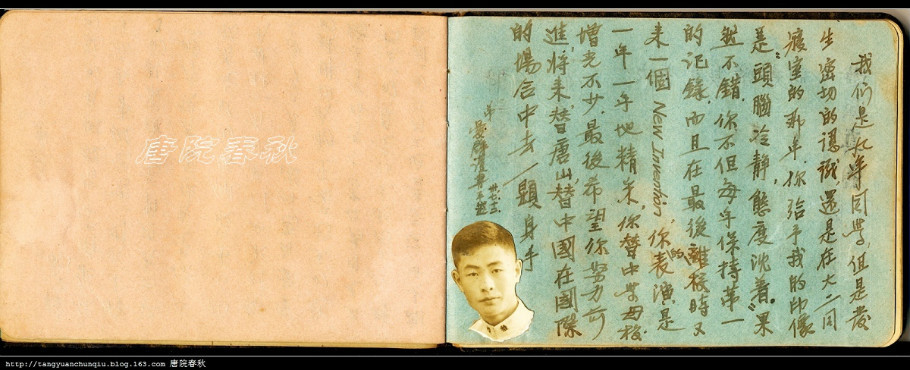 唐院春秋
我们是九年同學，但是發
生密切的認識還是在大二同
寢室的那年，你給予我的印像
是"頭腦冷靜，態度沈着"。果
然不錯，你不但每年保持第一
的记錄，而且在最後離校時又
来一個 New Invention，你的表演是
一年一年地精彩，你替中学母校
增光不少，最後希望你努力前
進，将来替唐山替中國在國際
的場合中去一顯身手
http://tangyuanchunqiu.blog.163.com 唐院春秋